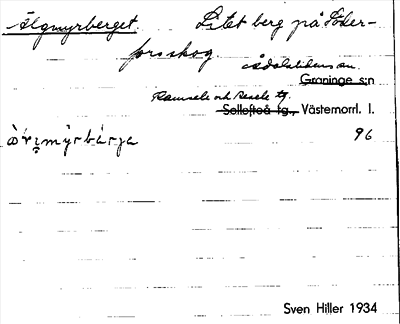 Älgmyrberget. Litet berg på Söder-
forsskog.
Ådalslidens sn.
Graninge s:n
Ramsele och Resele tg.
Sollefteå tg., Västernorrl. l.
96
Sven Hiller 1934